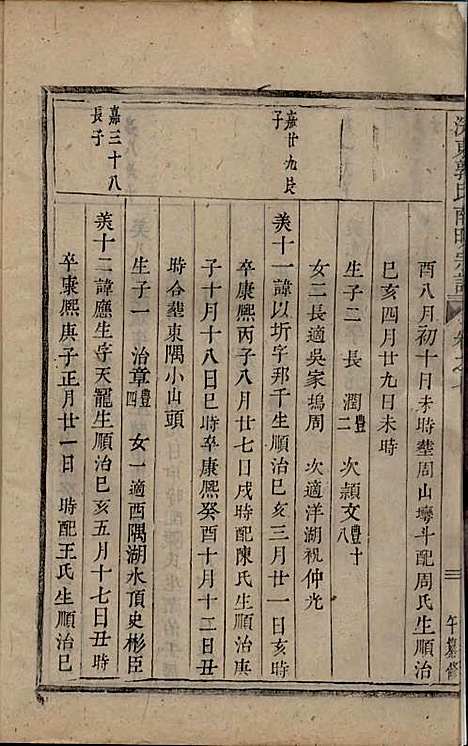 酉八月初十日未時塟周山塆斗配周氏生順治
巳亥四月廿九日未時
生子二 長 潤豐二 次顯文豐十八
女二長適吳家塢周 次適洋湖祝仲光
嘉廿九長子
美十一諱以圻字邦千生順治巳亥三月廿一日亥時
卒康熙丙子八月廿七日戌時配陳氏生順治庚
子十月十八日巳時卒康熙癸酉十月十二日丑
時合塟東隅小山頭
生子一 治章豐四 女一適西隅湖水頂史彬臣
嘉三十八長子
美十二諱應生字天寵生順治巳亥五月十七日丑時
卒康熙庚子正月廿一日 時配王氏生順治巳